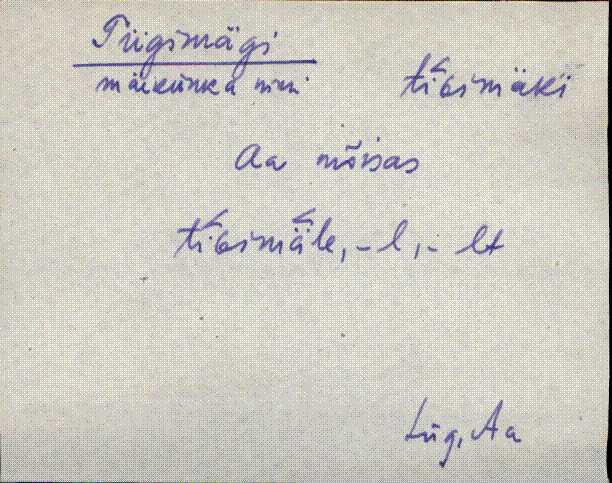 Tiigimägi
mäekünka nimi
tiɢimäki
Aa mõisas
tiɢimäle, -l, -lt
Lüg, Aa